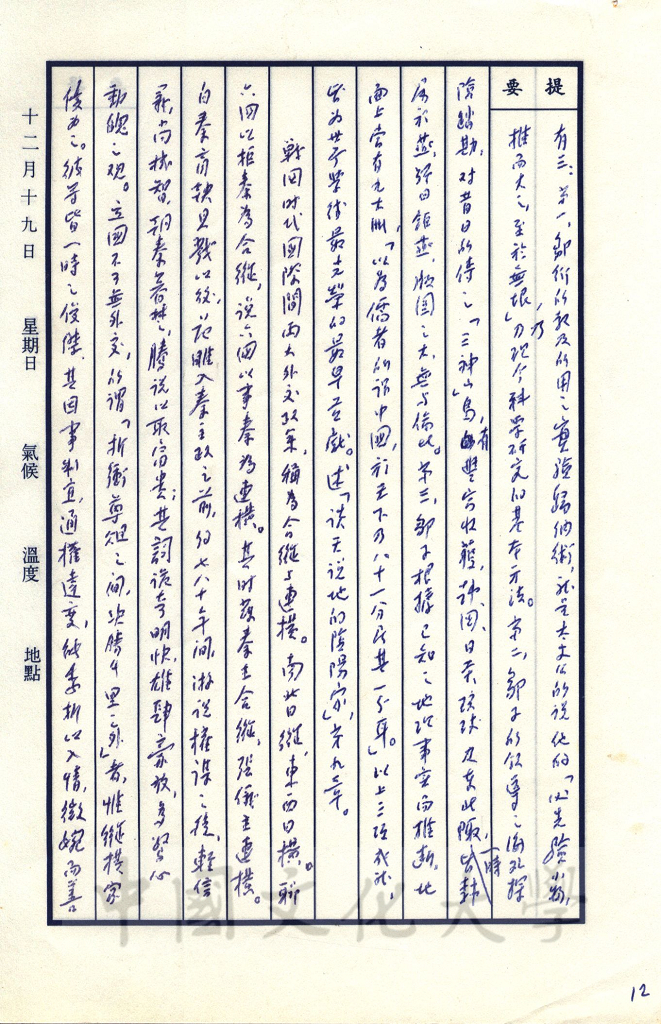 提要
有三：第一，鄒衍所設及所用之實驗歸納術，就是太史公所說他的「必先驗小物，
推而大之，至於無垠」，乃現今科學研究的基本方法。第二，鄒子所領導之海外探
險踏勘，對昔日所傳之「三神山」島，有豐富收藏，韓國、日本、琉球乃至此輩一時皆
屬於燕，號曰鉅燕，版圖之大，無與倫比。第三，鄒子根據已知之地理事實而推斷，地
面上當有九大洲，「以為儒者所謂中國，於天下乃八十一分居其一分耳。」以上三項成就，
皆為世界學術最光榮的最早貢獻。述「談天說地的陰陽家」，第九章。
戰國時代國際間兩大外交政策，稱為合縱與連橫。南北曰縱，東西曰橫。聯
六國以拒秦為合縱，說六國以事秦為連橫。其時蘇秦主合縱，張儀主連橫。
自秦商鞅見戮以後，范雎入秦主政之前，約七八十年間，游說權謀之徒，輕信
義，尚機智，朝秦暮楚，騰說以取富貴；其詞詭奇明快，雄肆豪放，多驚心
動魄之觀。立國不可無外交，所謂「折衝尊俎之間，決勝千里之外」者，惟縱橫家
優為之。彼等皆一時之俊傑，其因事制宜，通權達變，純柔折以入情，微婉而善
十二月十九日
星期日
氣候
溫度
地點
中國文化大學
12